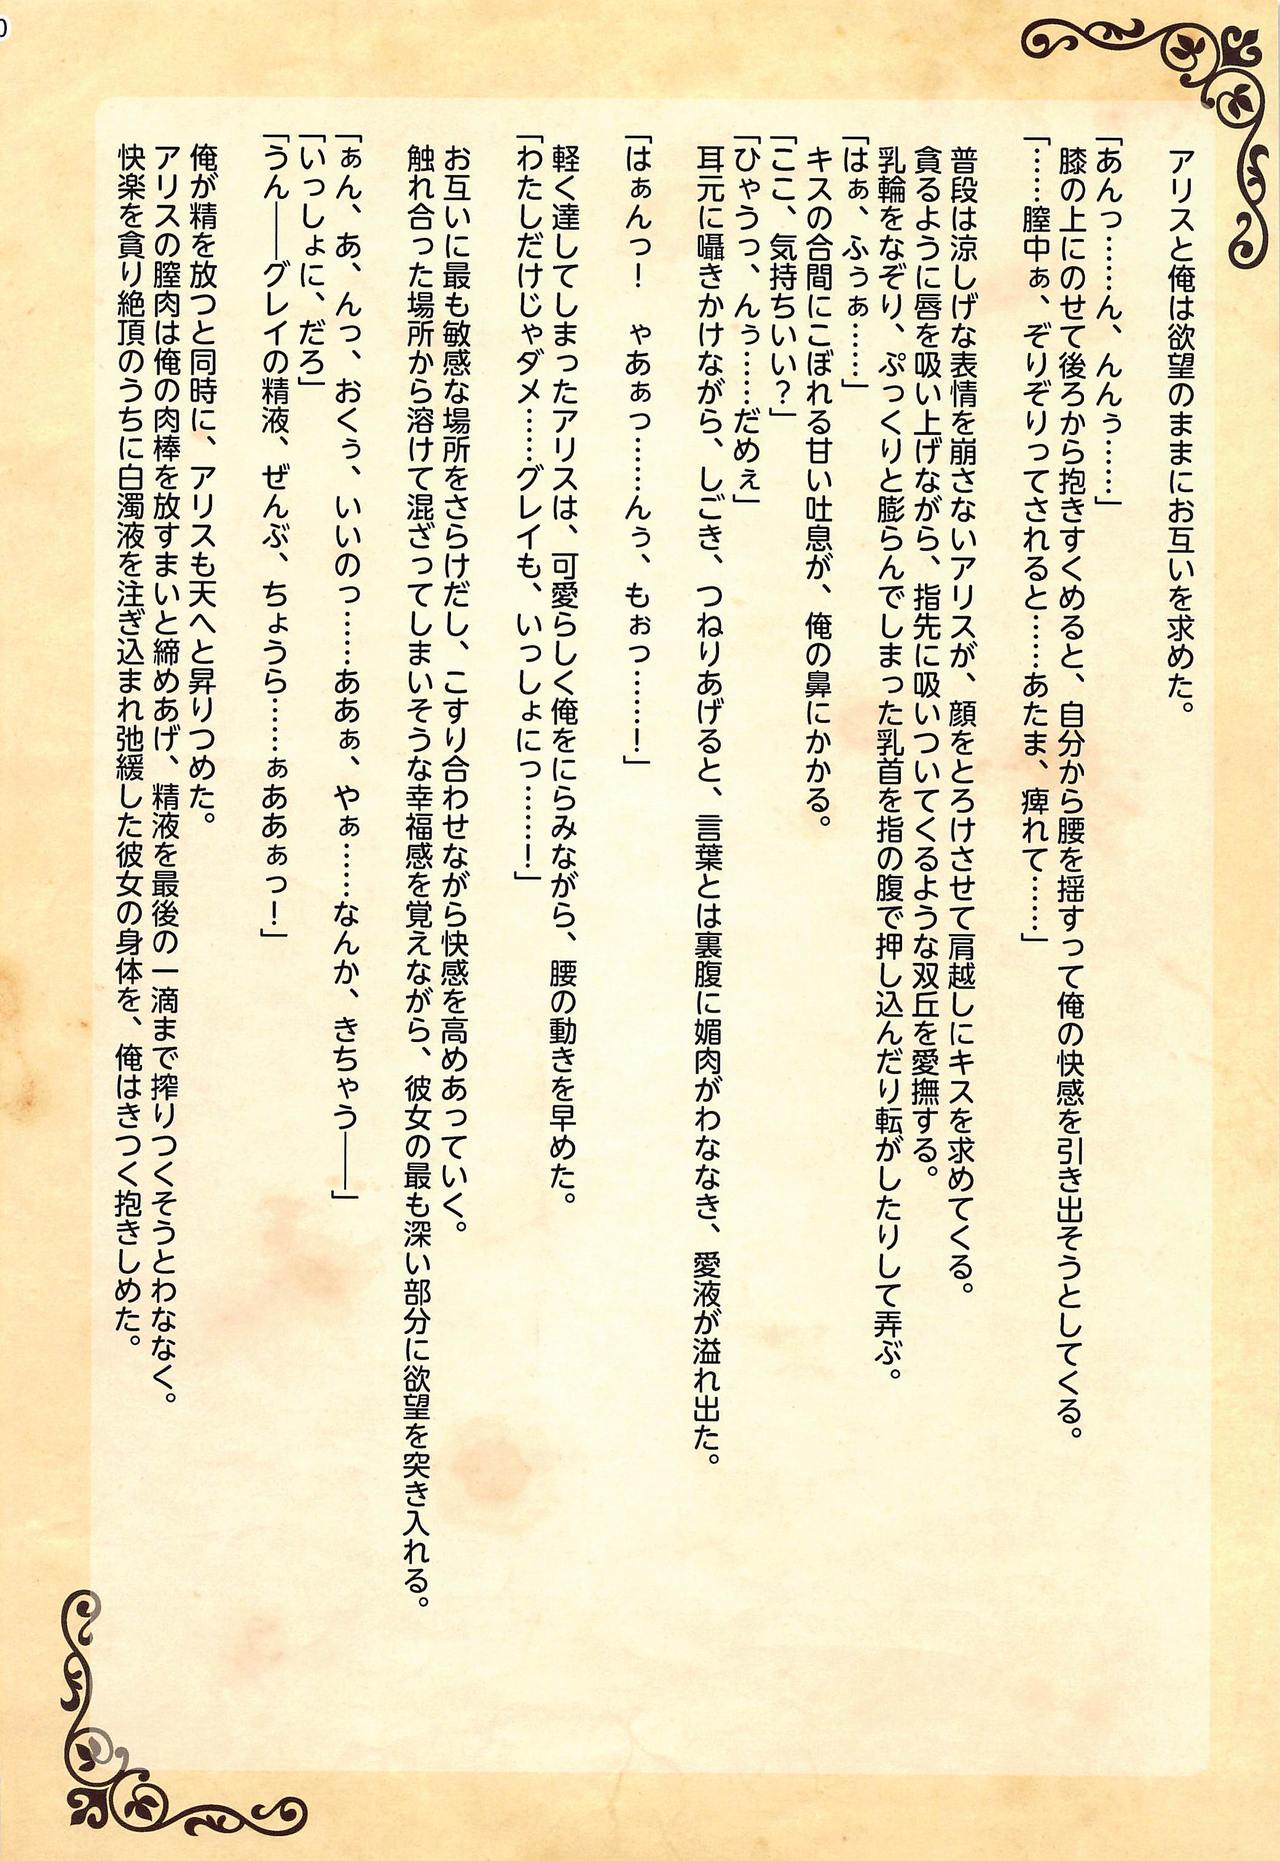 アリスと俺は欲望のままにお互いを求めた。
「あんっ……ん、んんぅ……」
膝の上にのせて後ろから抱きすくめると、自分から腰を揺すって俺の快感を引き出そうとしてくる。
「……膣中ぁ、ぞりぞりってされると……あたま、痺れて……」
普段は涼しげな表情を崩さないアリスが、顔をとろけさせて肩越しにキスを求めてくる。
貪るように唇を吸い上げながら、指先に吸いついてくるような双丘を愛撫する。
乳輪をなぞり、ぷっくりと膨らんでしまった乳首を指の腹で押し込んだり転がしたりして弄ぶ。
「はぁ、ふぅぁ……」
キスの合間にこぼれる甘い吐息が、俺の鼻にかかる。
「ここ、気持ちいい？」
「ひゃうっ、んぅ……だめぇ」
耳元に囁きかけながら、しごき、つねりあげると、言葉とは裏腹に媚肉がわななき、愛液が溢れ出た。
「はぁんっ！　ゃあぁっ……んぅ、もぉっ……！」
軽く達してしまったアリスは、可愛らしく俺をにらみながら、腰の動きを早めた。
「わたしだけじゃダメ……グレイも、いっしょにっ……！」
お互いに最も敏感な場所をさらけだし、こすり合わせながら快感を高めあっていく。
触れ合った場所から溶けて混ざってしまいそうな幸福感を覚えながら、彼女の最も深い部分に欲望を突き入れる。
「ぁん、あ、んっ、おくぅ、いいのっ……ああぁ、やぁ……なんか、きちゃう――」
「いっしょに、だろ」
「うん――グレイの精液、ぜんぶ、ちょうら……ぁああぁっ！」
俺が精を放つと同時に、アリスも天へと昇りつめた。
アリスの膣肉は俺の肉棒を放すまいと締めあげ、精液を最後の一滴まで搾りつくそうとわななく。
快楽を貪り絶頂のうちに白濁液を注ぎ込まれ弛緩した彼女の身体を、俺はきつく抱きしめた。